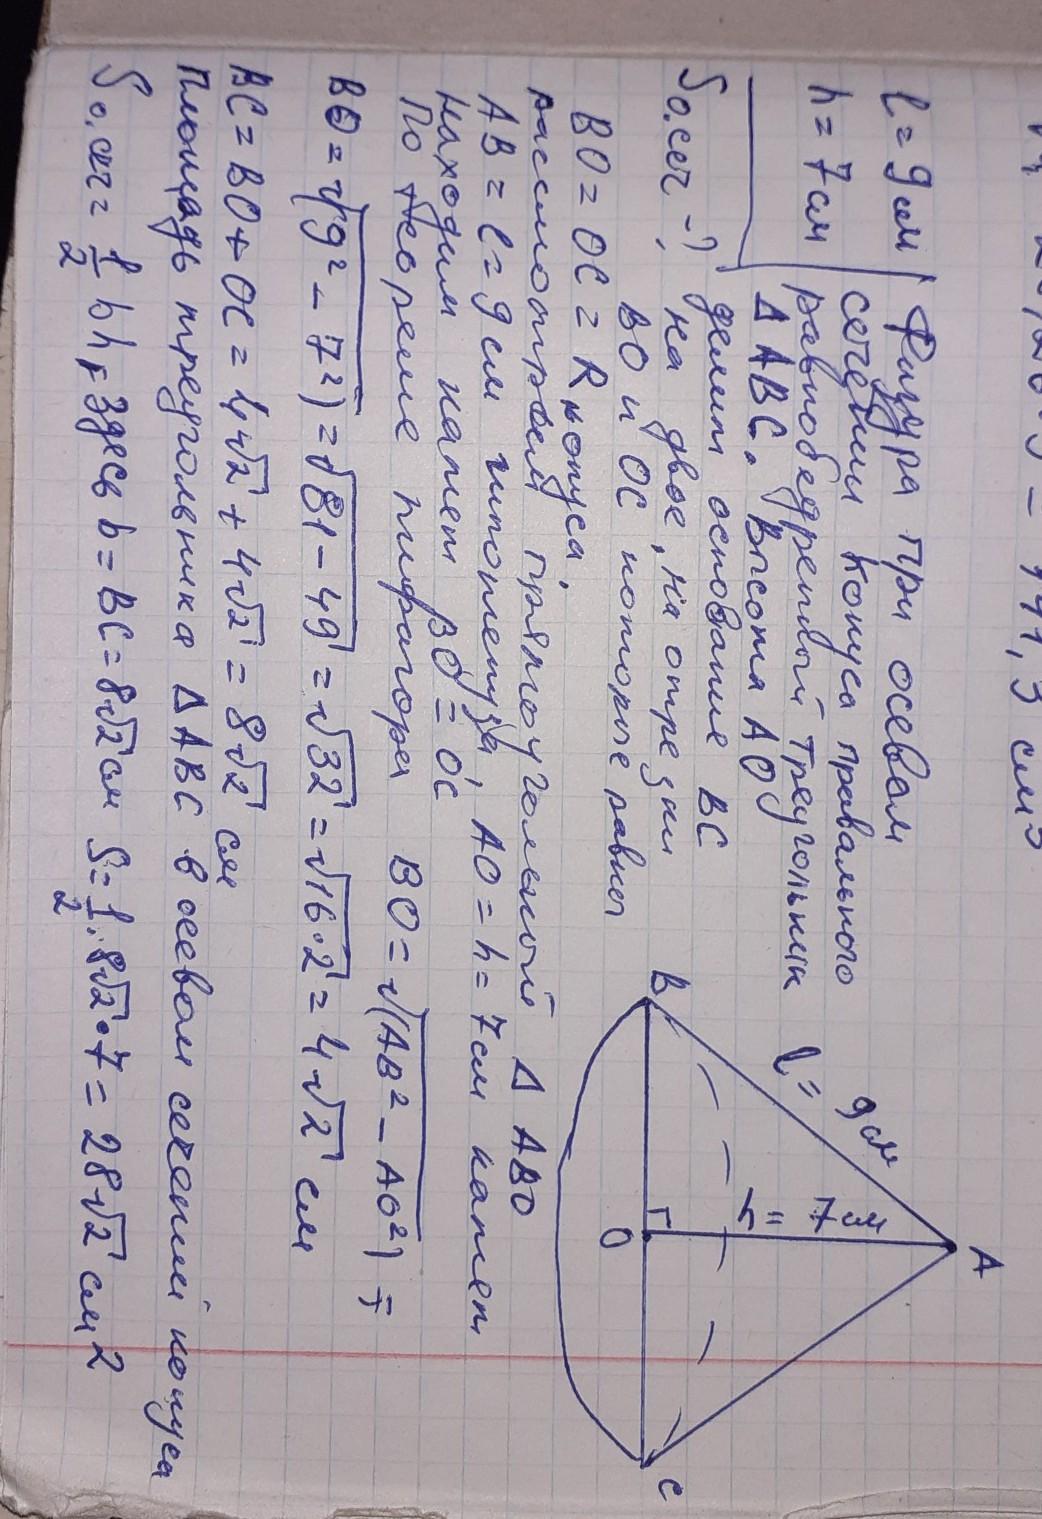 l = 9 см
h = 7 см
S о.сеч - ?
Фигура при осевом
сечении конуса правильного
равнобедренный треугольник
Δ ABC. Высота AO
делит основание BC
на двое, на отрезки
BO и OC которые равны
BO = OC = R конуса.
рассмотрим прямоугольный Δ ABO
AB = l = 9 см гипотенуза, AO = h = 7 см катет
находим катет BO = OC
По теореме пифагора BO = √(AB² - AO²) =
BO = √(9² - 7²) = √81 - 49 = √32 = √16·2 = 4√2 см
BC = BO + OC = 4√2 + 4√2 = 8√2 см
Площадь треугольника Δ ABC в осевом сечении конуса
S о.сеч = 1/2 b h, здесь b = BC = 8√2 см S = 1/2 · 8√2 · 7 = 28√2 см 2
A
B
C
O
l = 9 см
h = 7 см